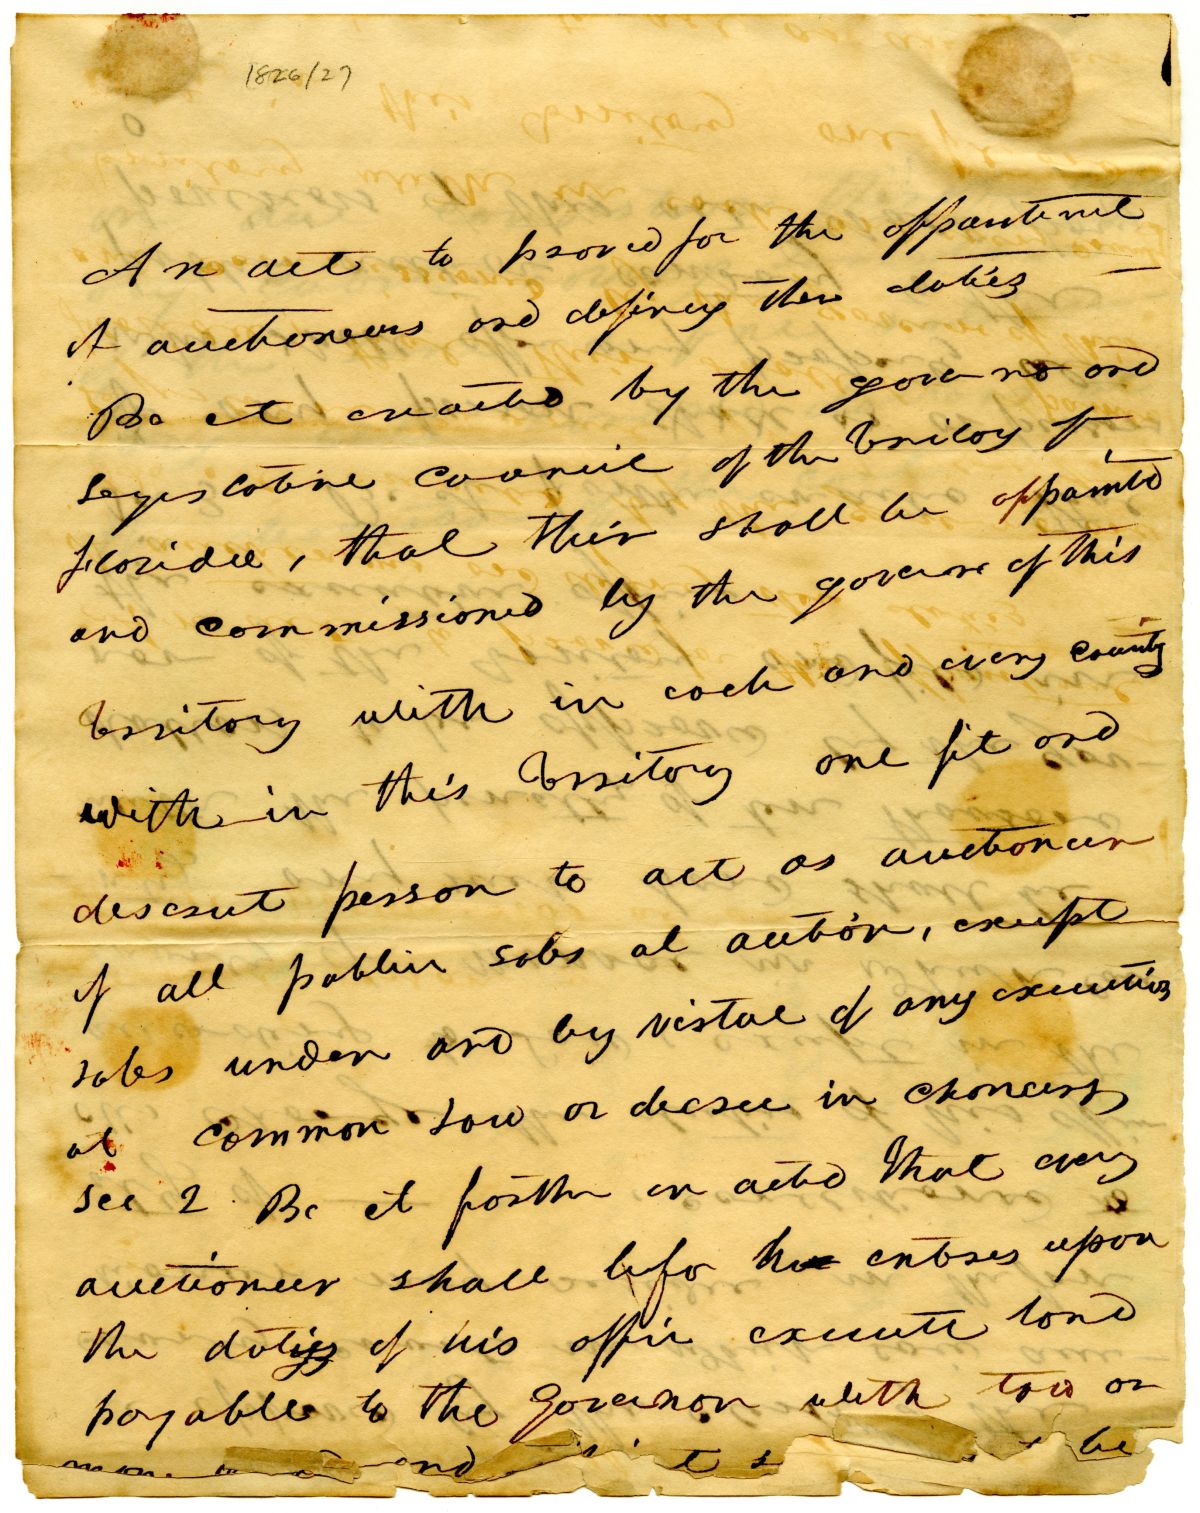 1826/27
An act to provid for the appointment
of auctioneers and defining ther duties
Be it enacted by the governor and
Legislative Council of the Territory of
Florida, that their shall be appointed
and commissioned by the governor of this
Territory with in each and every county
with in this Territory one fit and
descreet person to act as auctioneer
of all public sales at auction, except
sales under and by virtue of any execution
at common Law or decree in chancery
Sec 2 Be it further en acted That every
auctioneer shall befor he enters upon
the duties of his office execute bond
payable to the Governor with two or
more and be